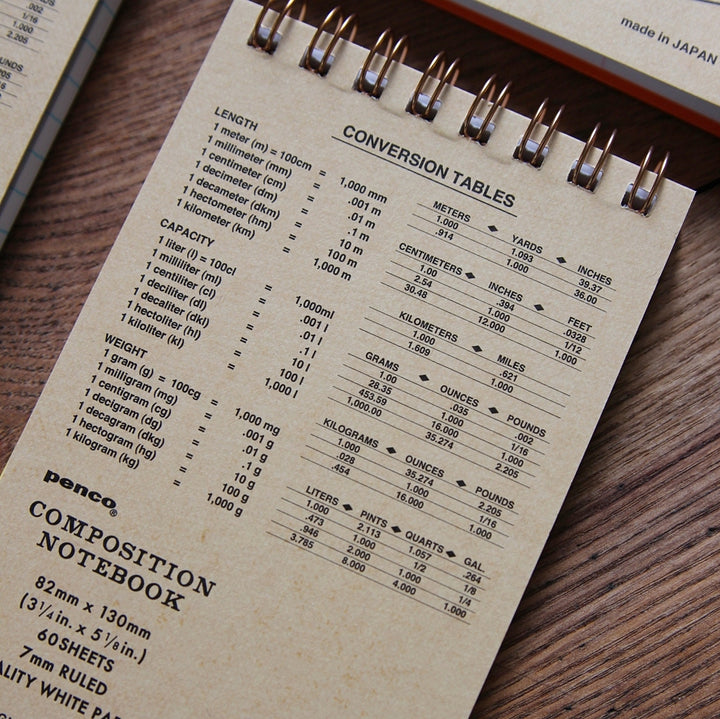 made in JAPAN
.002
1/16
1.000
2.205
CONVERSION TABLES
LENGTH
1 meter (m) = 100cm = 1,000 mm
1 millimeter (mm) = .001 m
1 centimeter (cm) = .01 m
1 decimeter (dm) = .1 m
1 decameter (dkm) = 10 m
1 hectometer (hm) = 100 m
1 kilometer (km) = 1,000 m
CAPACITY
1 liter (l) = 100cl = 1,000ml
1 milliliter (ml) = .001 l
1 centiliter (cl) = .01 l
1 deciliter (dl) = .1 l
1 decaliter (dkl) = 10 l
1 hectoliter (hl) = 100 l
1 kiloliter (kl) = 1,000 l
WEIGHT
1 gram (g) = 100cg = 1,000 mg
1 milligram (mg) = .001 g
1 centigram (cg) = .01 g
1 decigram (dg) = .1 g
1 decagram (dkg) = 10 g
1 hectogram (hg) = 100 g
1 kilogram (kg) = 1,000 g
METERS ◆ YARDS ◆ INCHES
1.000 1.093 39.37
.914 1.000 36.00
CENTIMETERS ◆ INCHES ◆ FEET
1.00 .394 .0328
2.54 1.000 1/12
30.48 12.000 1.000
KILOMETERS ◆ MILES
1.000 .621
1.609 1.000
GRAMS ◆ OUNCES ◆ POUNDS
1.00 .035 .002
28.35 1.000 1/16
453.59 16.000 1.000
1,000.00 35.274 2.205
KILOGRAMS ◆ OUNCES ◆ POUNDS
1.000 35.274 2.205
.028 1.000 1/16
.454 16.000 1.000
LITERS ◆ PINTS ◆ QUARTS ◆ GAL.
1.000 2.113 1.057 .264
.473 1.000 1/2 1/8
.946 2.000 1.000 1/4
3.785 8.000 4.000 1.000
penco®
COMPOSITION
NOTEBOOK
82mm x 130mm
(3 1/4 in. x 5 1/8 in.)
60 SHEETS
7mm RULED
ALITY WHITE PAP